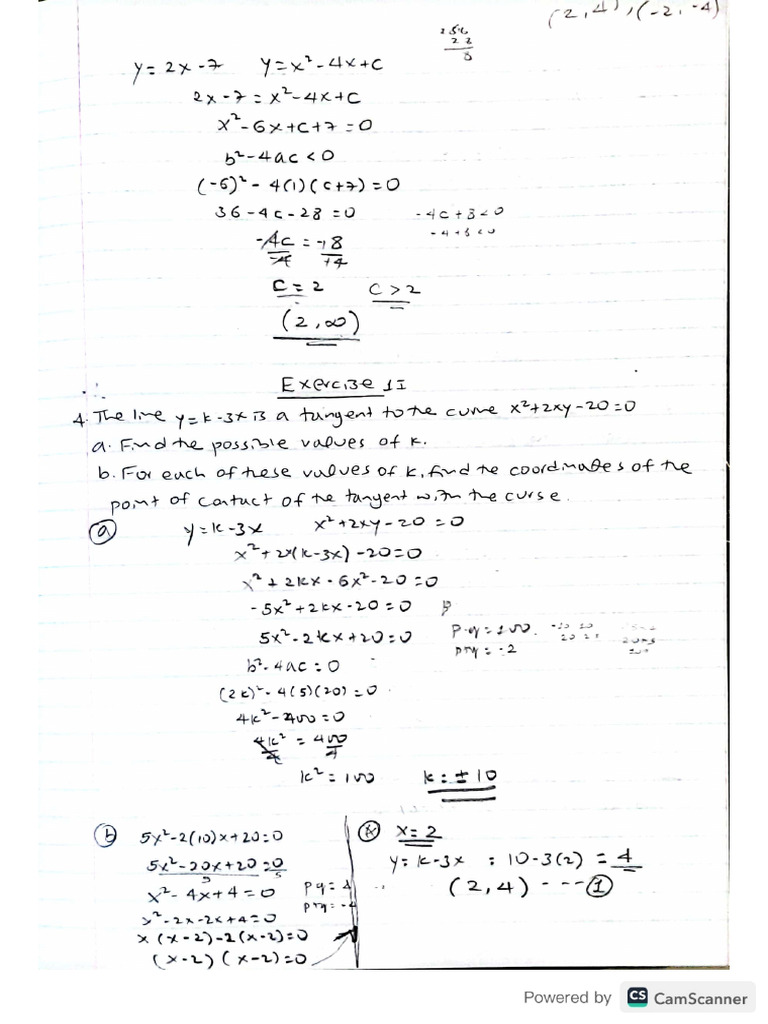 (2,4), (-2,-4)
y = 2x-7 y = x²-4x+c
2x-7 = x²-4x+c
x²-6x+c+7 = 0
b²-4ac < 0
(-6)² - 4(1)(c+7) = 0
36-4c-28 = 0 -4c+8<0
-4+8<0
-4c = -8
-4 +4
c = 2 c > 2
(2, ∞)
Exercise 1I
4. The line y = k-3x is a tangent to the curve x²+2xy-20=0
a. Find the possible values of k.
b. For each of these values of k, find the coordinates of the
point of contact of the tangent with the curse.
(a) y = k-3x x²+2xy-20 = 0
x²+2x(k-3x)-20=0
x²+2kx-6x²-20=0
-5x²+2kx-20=0
5x²-2kx+20=0 p·q = 100
p+q = -2
b²-4ac = 0
(2k)²-4(5)(20) = 0
4k²-400=0
4k² = 400
4 4
k² = 100 k = ±10
(b) 5x²-2(10)x+20=0
5x²-20x+20=0
5 5
x²-4x+4=0 pq = 4
p+q = -4
x²-2x-2x+4=0
x(x-2)-2(x-2)=0
(x-2)(x-2)=0
x = 2
y = k-3x = 10-3(2) = 4
(2,4) --- (1)
Powered by CS CamScanner